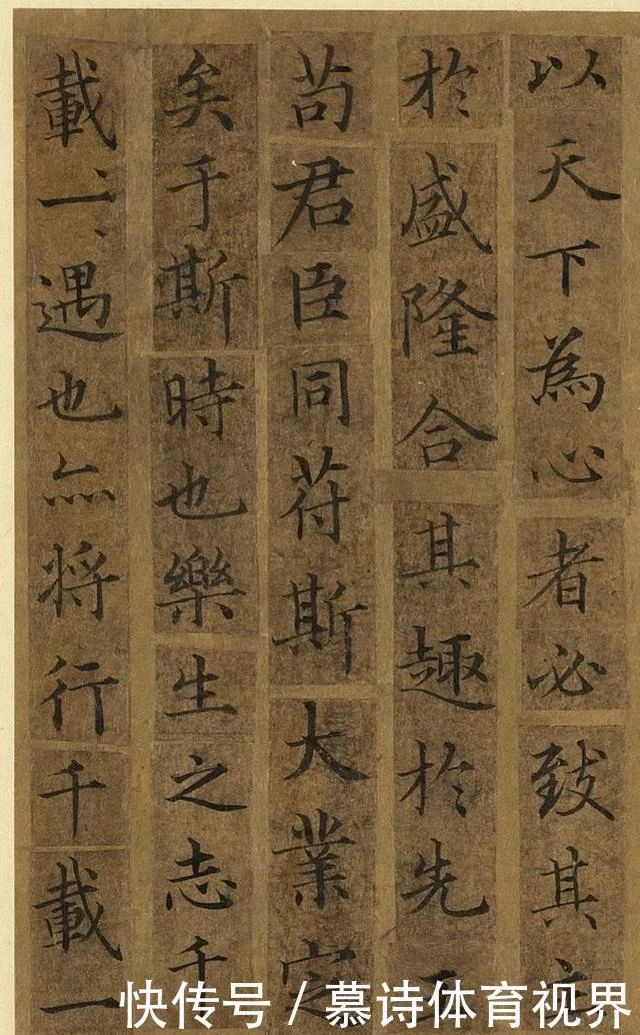 以天下為心者必致其
於盛隆合其趣於先
苟君臣同苻斯大業定
矣于斯時也樂生之志千
載一遇也亦将行千載一
快传号 / 慕诗体育视界